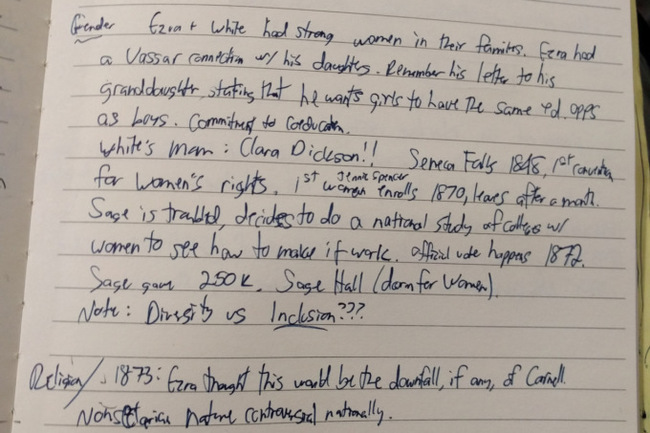 Gender Ezra + White had strong women in their families. Ezra had
a Vassar connection w/ his daughters. Remember his letter to his
granddaughter stating that he wants girls to have the same ed. opps
as boys. Commitment to coeducation.
White's mom: Clara Dickson!! Seneca Falls 1848, 1st convention
for women's rights. 1st Jennie Spencer woman enrolls 1870, leaves after a month.
Sage is troubled, decides to do a national study of colleges w/
women to see how to make it work. Official vote happens 1872.
Sage gave 250K. Sage Hall (dorm for women).
Note: Diversity vs Inclusion???
Religion/ 1873: Ezra thought this would be the downfall, if any, of Cornell.
Nonsectarian nature controversial nationally.